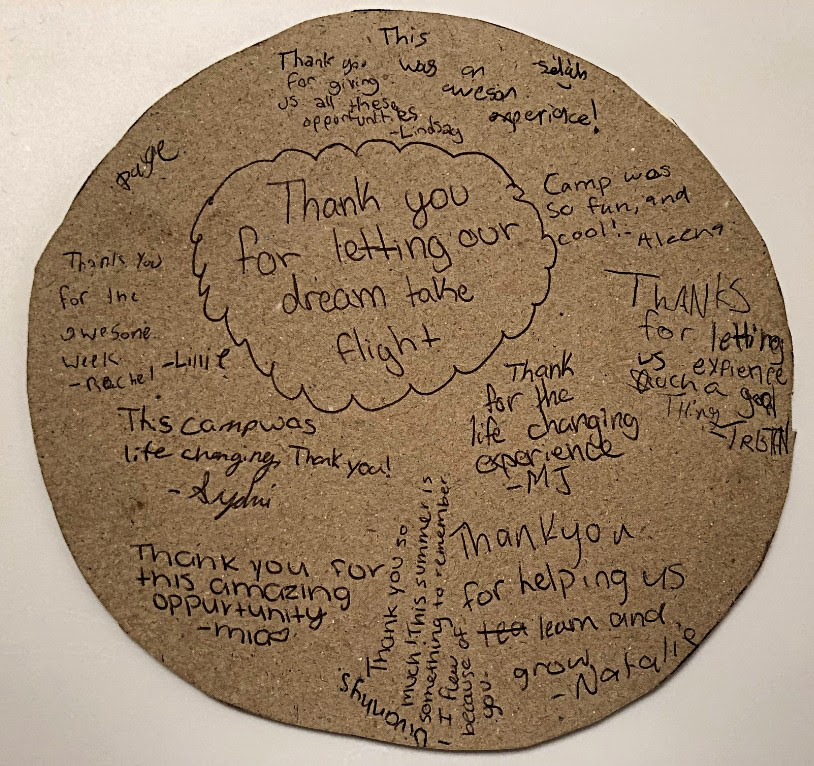 This
was an
aweson
experience!
Selah
Thank you
for giving
us all these
opportunities
-Lindsay
page
Thank you
for letting our
dream take
flight
Camp was
so fun, and
cool!- Aleena
Thanks You
for the
awesome
week
-Rachel -Lillie
THANKS
for letting
us expience
such a good
Thing
-TRISTIN
Thank
for the
life changing
experience
-MJ
This camp was
life changing, Thank you!
-Sydni
Thank you for
this amazing
oppurtunity
-mia
Thank you so
much! This summer is
something to remember
- I flew
because of
you.
Thankyou
for helping us
tea learn and
grow
-Natalie